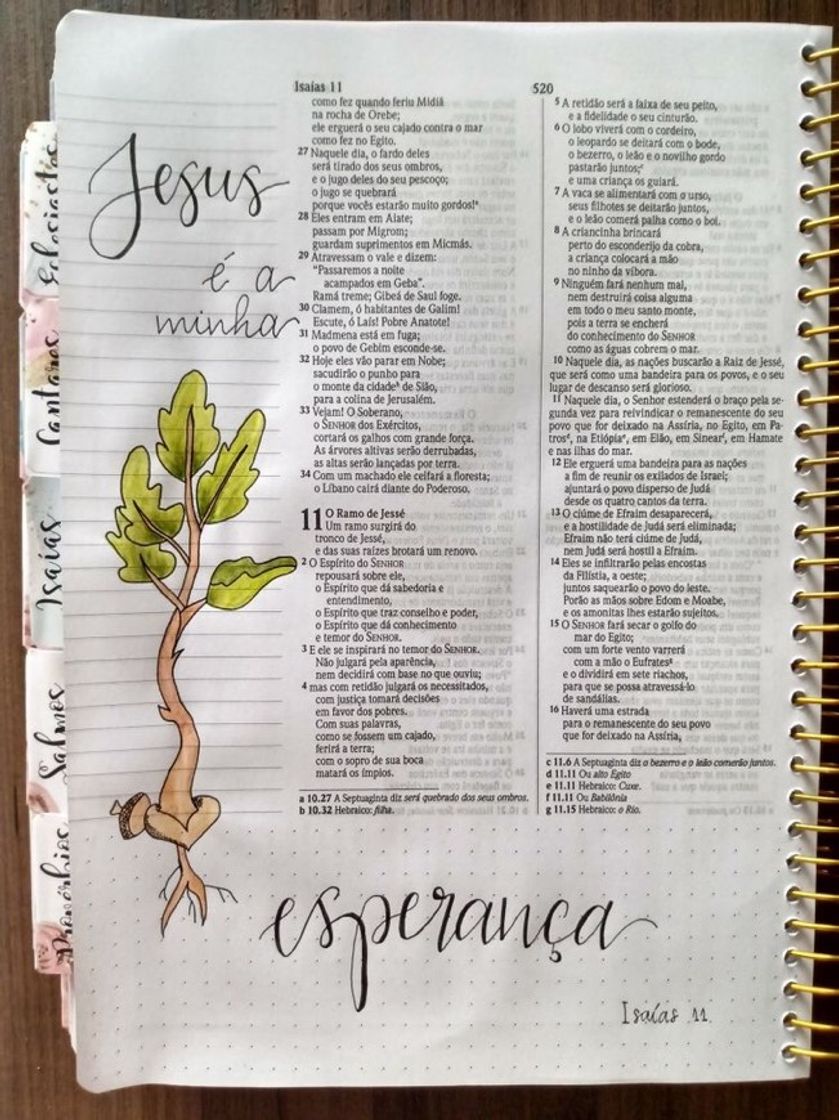 Isaías 11
520
Jesus
é a
minha
como fez quando feriu Midiã
na rocha de Orebe;
ele erguerá o seu cajado contra o mar
como fez no Egito.
27 Naquele dia, o fardo deles
será tirado dos seus ombros,
e o jugo deles do seu pescoço;
o jugo se quebrará
porque vocês estarão muito gordos!ª
28 Eles entram em Aiate;
passam por Migrom;
guardam suprimentos em Micmás.
29 Atravessam o vale e dizem:
"Passaremos a noite
acampados em Geba".
Ramá treme; Gibeá de Saul foge.
30 Clamem, ó habitantes de Galim!
Escute, ó Laís! Pobre Anatote!
31 Madmena está em fuga;
o povo de Gebim esconde-se.
32 Hoje eles vão parar em Nobe;
sacudirão o punho para
o monte da cidadeᵇ de Sião,
para a colina de Jerusalém.
33 Vejam! O Soberano,
o SENHOR dos Exércitos,
cortará os galhos com grande força.
As árvores altivas serão derrubadas,
as altas serão lançadas por terra.
34 Com um machado ele ceifará a floresta;
o Líbano cairá diante do Poderoso.
O Ramo de Jessé
11 Um ramo surgirá do
tronco de Jessé,
e das suas raízes brotará um renovo.
2 O Espírito do SENHOR
repousará sobre ele,
o Espírito que dá sabedoria e
entendimento,
o Espírito que traz conselho e poder,
o Espírito que dá conhecimento
e temor do SENHOR.
3 E ele se inspirará no temor do SENHOR.
Não julgará pela aparência,
nem decidirá com base no que ouviu;
4 mas com retidão julgará os necessitados,
com justiça tomará decisões
em favor dos pobres.
Com suas palavras,
como se fossem um cajado,
ferirá a terra;
com o sopro de sua boca
matará os ímpios.
a 10.27 A Septuaginta diz será quebrado dos seus ombros.
b 10.32 Hebraico: filha.
5 A retidão será a faixa de seu peito,
e a fidelidade o seu cinturão.
6 O lobo viverá com o cordeiro,
o leopardo se deitará com o bode,
o bezerro, o leão e o novilho gordo
pastarão juntos;ᶜ
e uma criança os guiará.
7 A vaca se alimentará com o urso,
seus filhotes se deitarão juntos,
e o leão comerá palha como o boi.
8 A criancinha brincará
perto do esconderijo da cobra,
a criança colocará a mão
no ninho da víbora.
9 Ninguém fará nenhum mal,
nem destruirá coisa alguma
em todo o meu santo monte,
pois a terra se encherá
do conhecimento do SENHOR
como as águas cobrem o mar.
10 Naquele dia, as nações buscarão a Raiz de Jessé,
que será como uma bandeira para os povos, e o seu
lugar de descanso será glorioso.
11 Naquele dia, o Senhor estenderá o braço pela se-
gunda vez para reivindicar o remanescente do seu
povo que for deixado na Assíria, no Egito, em Pa-
trosᵈ, na Etiópiaᵉ, em Elão, em Sinearᶠ, em Hamate
e nas ilhas do mar.
12 Ele erguerá uma bandeira para as nações
a fim de reunir os exilados de Israel;
ajuntará o povo disperso de Judá
desde os quatro cantos da terra.
13 O ciúme de Efraim desaparecerá,
e a hostilidade de Judá será eliminada;
Efraim não terá ciúme de Judá,
nem Judá será hostil a Efraim.
14 Eles se infiltrarão pelas encostas
da Filístia, a oeste;
juntos saquearão o povo do leste.
Porão as mãos sobre Edom e Moabe,
e os amonitas lhes estarão sujeitos.
15 O SENHOR fará secar o golfo do
mar do Egito;
com um forte vento varrerá
com a mão o Eufratesᵍ
e o dividirá em sete riachos,
para que se possa atravessá-lo
de sandálias.
16 Haverá uma estrada
para o remanescente do seu povo
que for deixado na Assíria,
c 11.6 A Septuaginta diz o bezerro e o leão comerão juntos.
d 11.11 Ou alto Egito
e 11.11 Hebraico: Cuxe.
f 11.11 Ou Babilônia
g 11.15 Hebraico: o Rio.
esperança
Isaías 11
Eclesiastes
Cantares
Isaías
Salmos
Provérbios